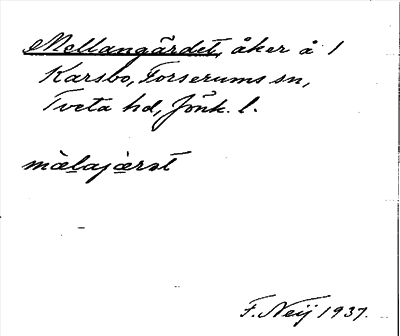 Mellangärdet, åker å 1
Karsbo, Forserums sn,
Tveta hd, Jönk. l.
mὰlajὰrst
F. Neij 1937.